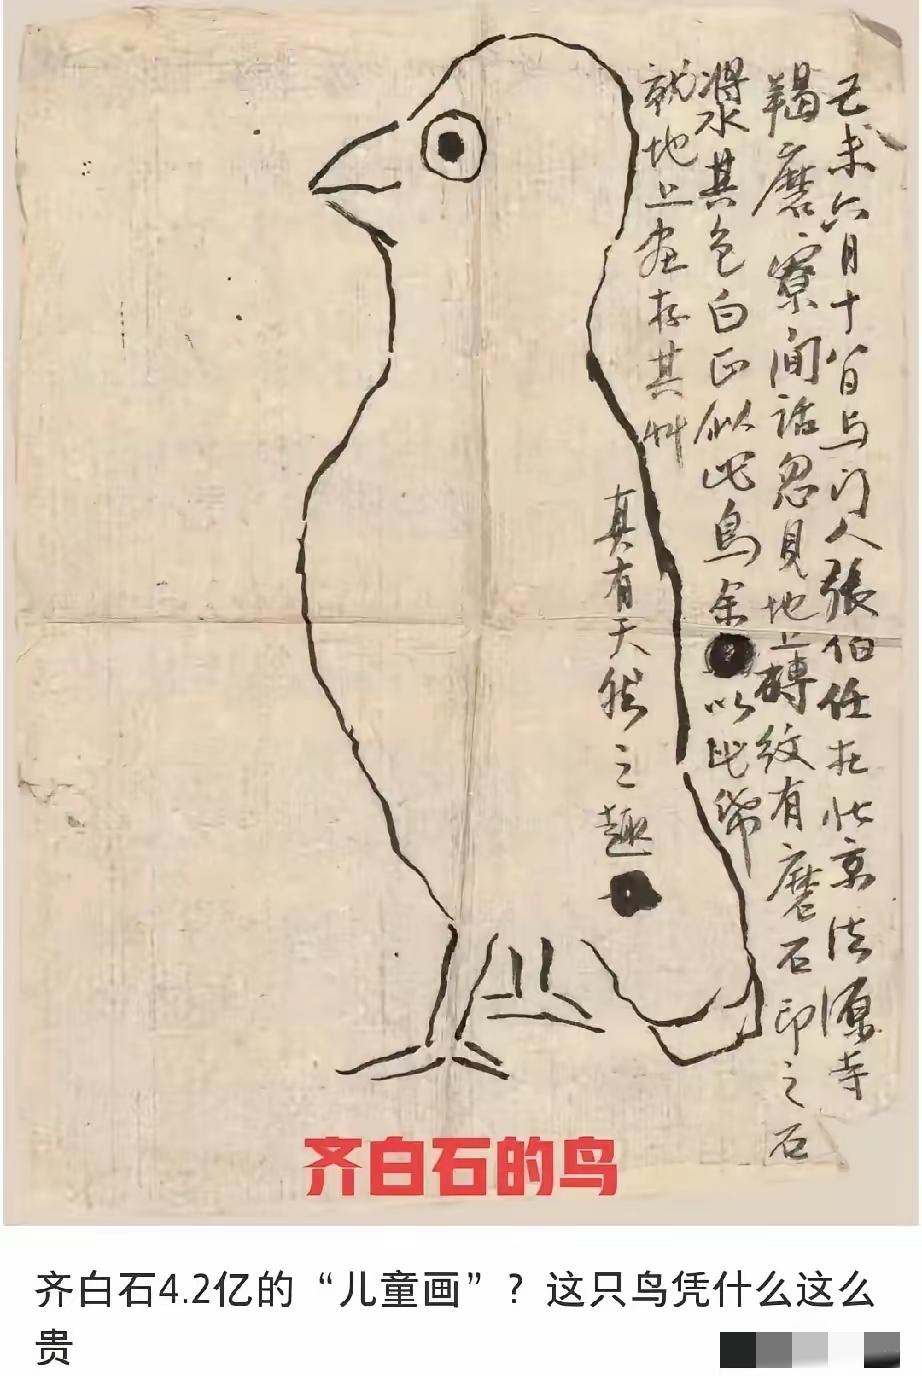 己未六月十八日与门人張伯任在北京法源寺
羯磨寮间话忽見地上磚纹有磨石印之石
浆水其色白正似此鳥余以此纸
就地上画存其艸
真有天然之趣
齐白石的鸟
齐白石4.2亿的“儿童画”？这只鸟凭什么这么
贵